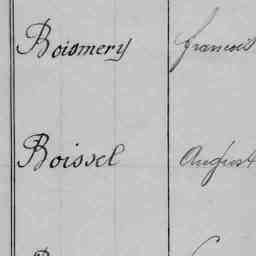 Boismery francois
Boissel August